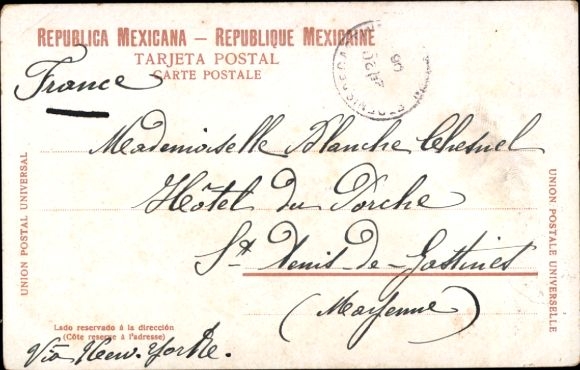 REPUBLICA MEXICANA — REPUBLIQUE MEXICAINE
TARJETA POSTAL
CARTE POSTALE
France
Mademoiselle Blanche Chesnel
Hôtel du Porche
St Denis-de-Gastines
(Mayenne)
UNION POSTAL UNIVERSAL
UNION POSTALE UNIVERSELLE
Lado reservado á la dirección
(Côte reserve à l'adresse)
Via New-York.